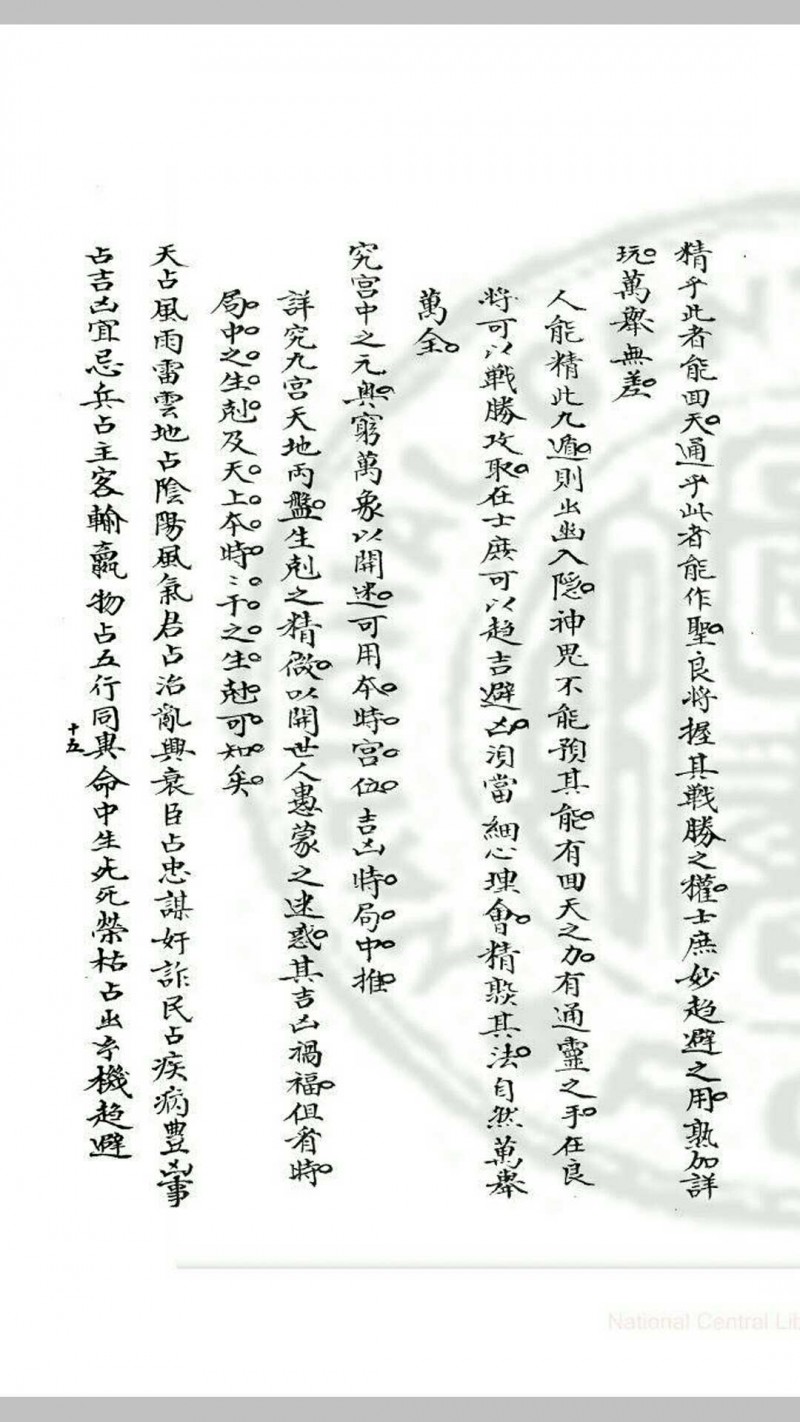 精乎此者能回天通乎此者能作聖良將握其戰勝之權士庶妙趨避之用熟加詳
玩萬舉無差
人能精此九遁則出幽入隱神鬼不能預其能有回天之力有通靈之手在良
將可以戰勝攻取在士庶可以趋吉避凶須當細心理會精察其法自然萬舉
萬全
究宮中之元奧窮萬象以開迷可用本時宮位吉凶時局中推
詳究九宮天地両盤生剋之精微以開世人愚蒙之迷惑其吉凶禍福但看時
局中之生剋及天上本時〻干之生剋可知矣
天占風雨雷雲地占陰陽風氣君占治亂興衰臣占忠謀奸詐民占疾病豊凶事
占吉凶宜忌兵占主客輸贏物占五行同異命中生死榮枯占出乎機趋避
十五
National Central Lib